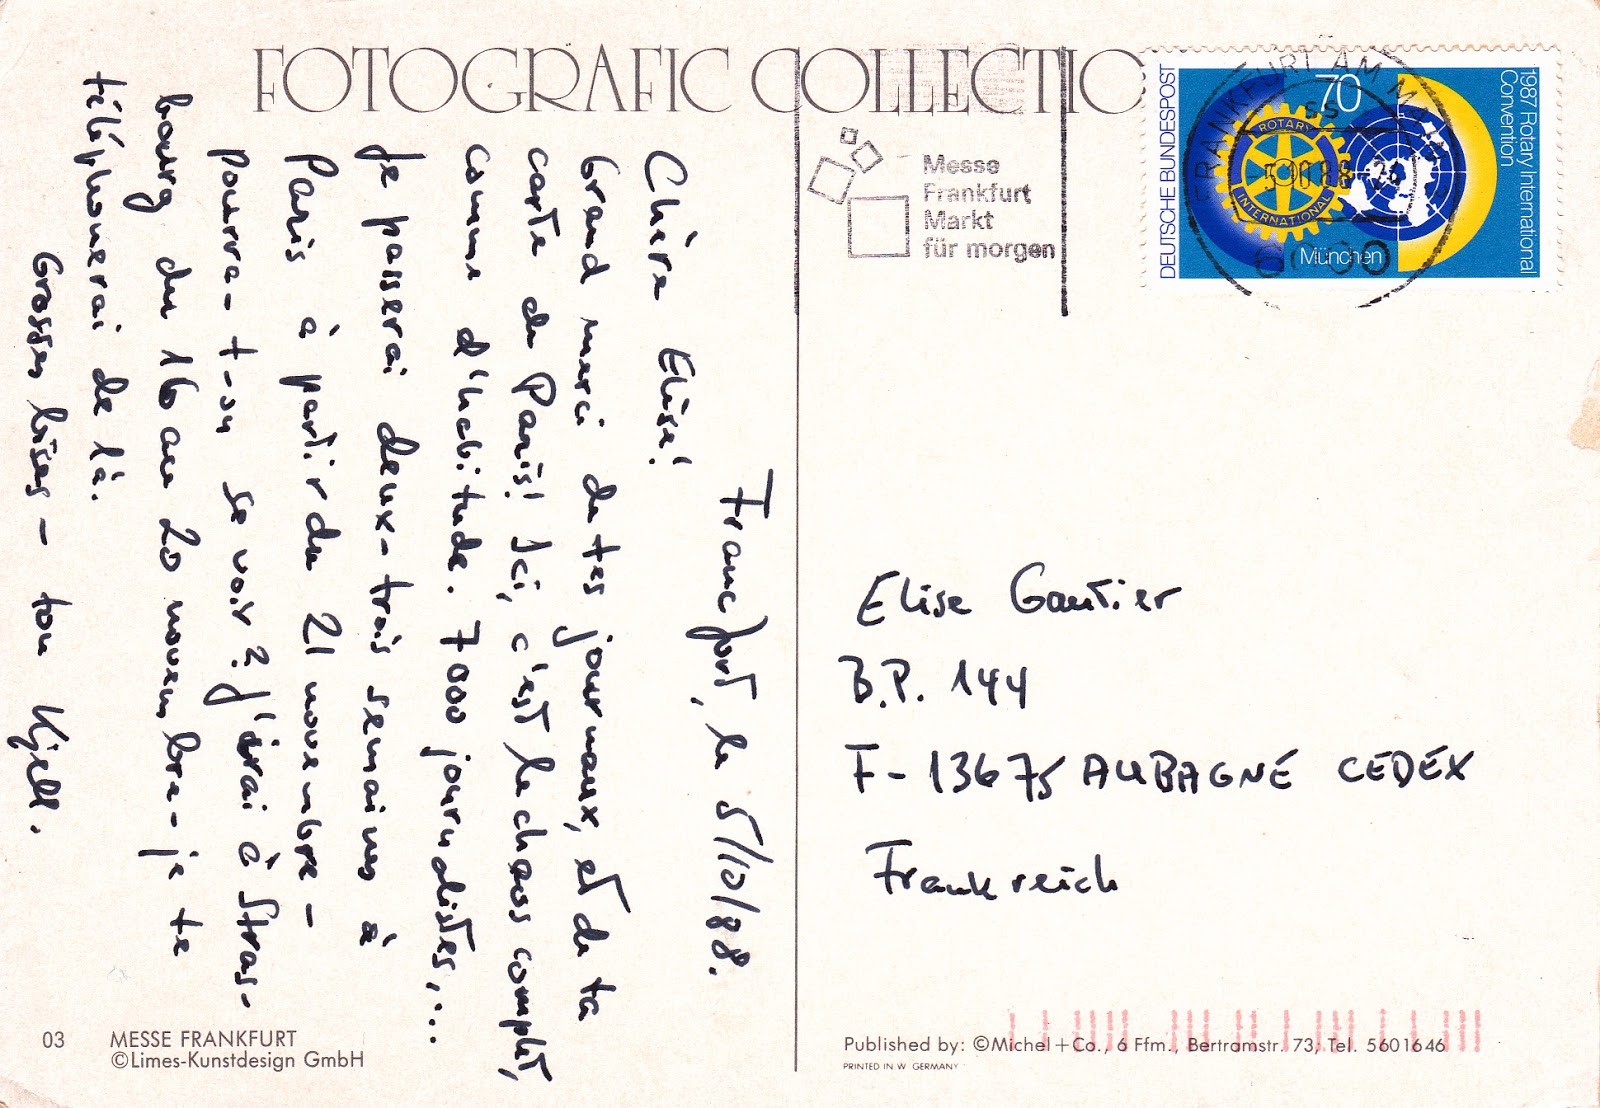 FOTOGRAFIC COLLECTIO
Francfort, le 5/10/88.
Chère Elise!
Grand merci de tes journaux, et de ta
carte de Paris! Ici, c'est le chaos complet,
comme d'habitude. 7000 journalistes,...
Je passerai deux-trois semaines à
Paris à partir du 21 novembre -
pourra-t-on se voir? J'irai à Stras-
bourg du 16 au 20 novembre - je te
téléphonerai de là.
Grosses bises - ton Kjell.
03
MESSE FRANKFURT
©Limes-Kunstdesign GmbH
Messe
Frankfurt
Markt
für morgen
DEUTSCHE BUNDESPOST
70
ROTARY
INTERNATIONAL
München
1987 Rotary International
Convention
FRANKFURT AM MAIN
ss
-5.10.88-
6000
Elise Gautier
B.P. 144
F-13675 AUBAGNE CEDEX
Frankreich
Published by: ©Michel+Co., 6 Ffm., Bertramstr. 73, Tel. 5601646
PRINTED IN W GERMANY